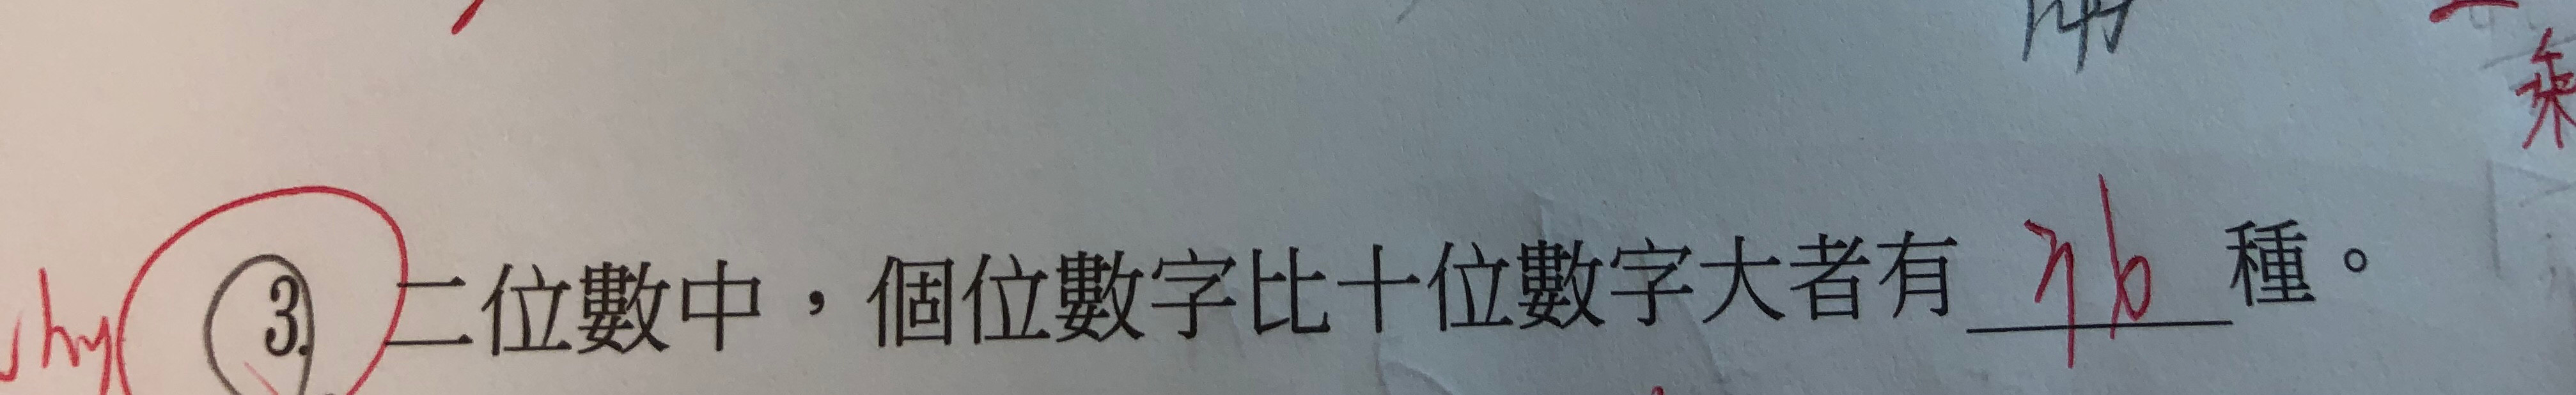 乘
why
3. 二位數中，個位數字比十位數字大者有 36 種。